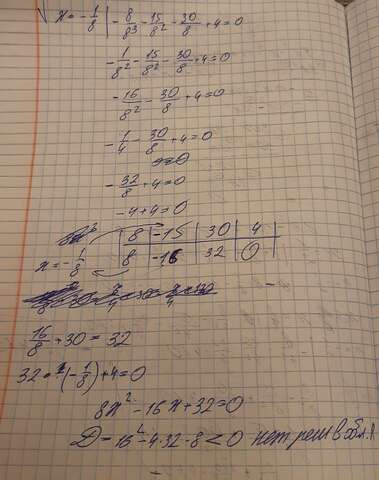 √ x = -1/8 | -8/8³ - 15/8² - 30/8 + 4 = 0
-1/8² - 15/8² - 30/8 + 4 = 0
-16/8² - 30/8 + 4 = 0
-1/4 - 30/8 + 4 = 0
-32/8 + 4 = 0
-4 + 4 = 0
8 | -15 | 30 | 4
x = -1/8 | 8 | -16 | 32 | 0
16/8 + 30 = 32
32 · (-1/8) + 4 = 0
8x² - 16x + 32 = 0
D = 16² - 4·32·8 < 0 нет реш в обл.